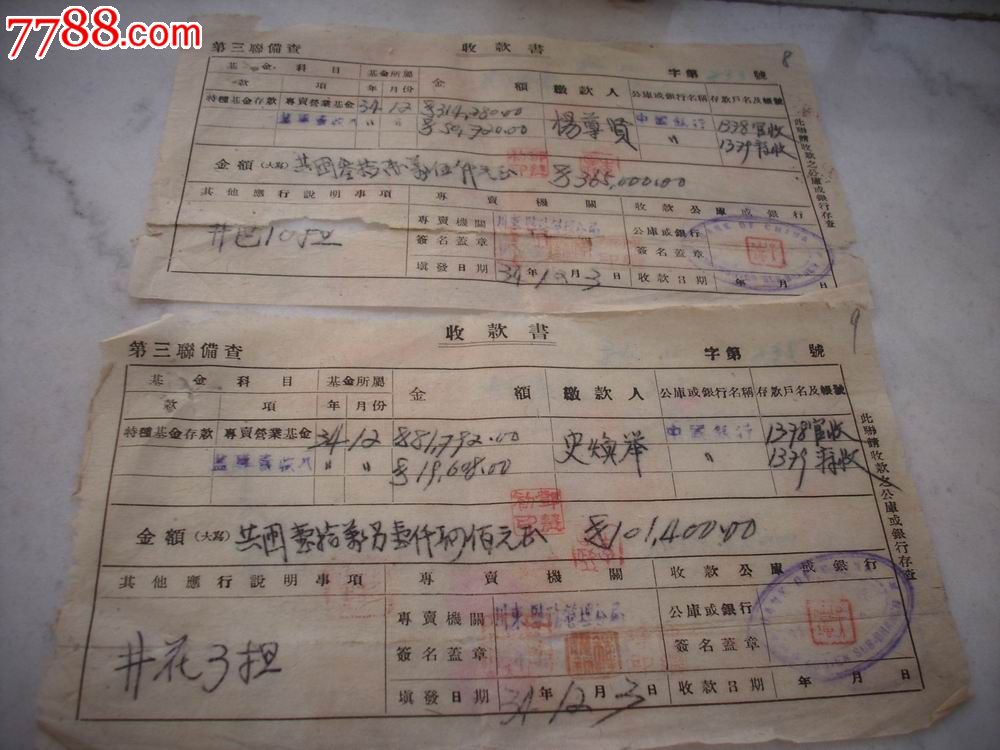 7788.com
8
第三聯備查 收款書 字第 號
基金科目 基金所屬 金額 繳款人 公庫或銀行名稱 存款戶名及帳號
款 項 年 月份
特種基金存款 專賣營業基金 34 12 314,280.00 楊尊賢 中國銀行 1378官收
〃 〃 50,720.00 〃 1379
金額(大寫) 365,000.00
其他應行說明事項 專賣機關 收款公庫或銀行
井巴10担 公庫或銀行
簽名蓋章 簽名蓋章
填發日期 34年12月3日 收款日期 年 月 日
此聯請收款之公庫或銀行存查
BANK OF CHINA
9
第三聯備查 收款書 字第 號
基金科目 基金所屬 金額 繳款人 公庫或銀行名稱 存款戶名及帳號
款 項 年 月份
特種基金存款 專賣營業基金 34 12 81,792.00 史煥舉 中國銀行 1378官收
〃 〃 19,608.00 〃 1379
金額(大寫) 101,400.00
其他應行說明事項 專賣機關 收款公庫或銀行
井花3担 專賣機關 川東 公庫或銀行
簽名蓋章 簽名蓋章
填發日期 34年12月3日 收款日期 年 月 日
此聯請收款之公庫或銀行存查
BANK OF CHINA